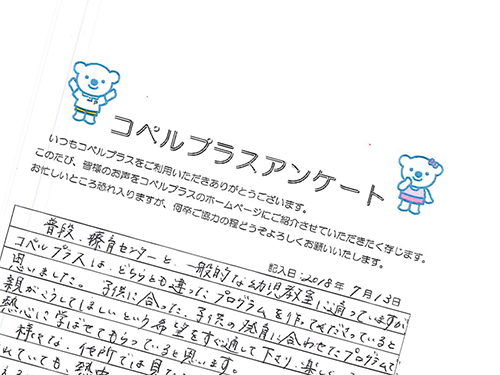 コペルプラスアンケート
いつもコペルプラスをご利用いただきありがとうございます。
このたび、皆様のお声をコペルプラスのホームページにご紹介させていただきたく存じます。
お忙しいところ恐れ入りますが、何卒ご協力の程どうぞよろしくお願いいたします。
記入日:2018年 9月13日
普段、療育センターと、一般的な幼児教室に通っていますが
コペルプラスは、どちらとも違ったプログラムを作って下さっていると
思いました。子供に合った、子供の発育に合わせたプログラムで
親がこうしてほしいという希望をすぐ通して下さり、楽しく
熱心に学ばせてもらっていると思います。
様々な、他所では見
れていても、熱中